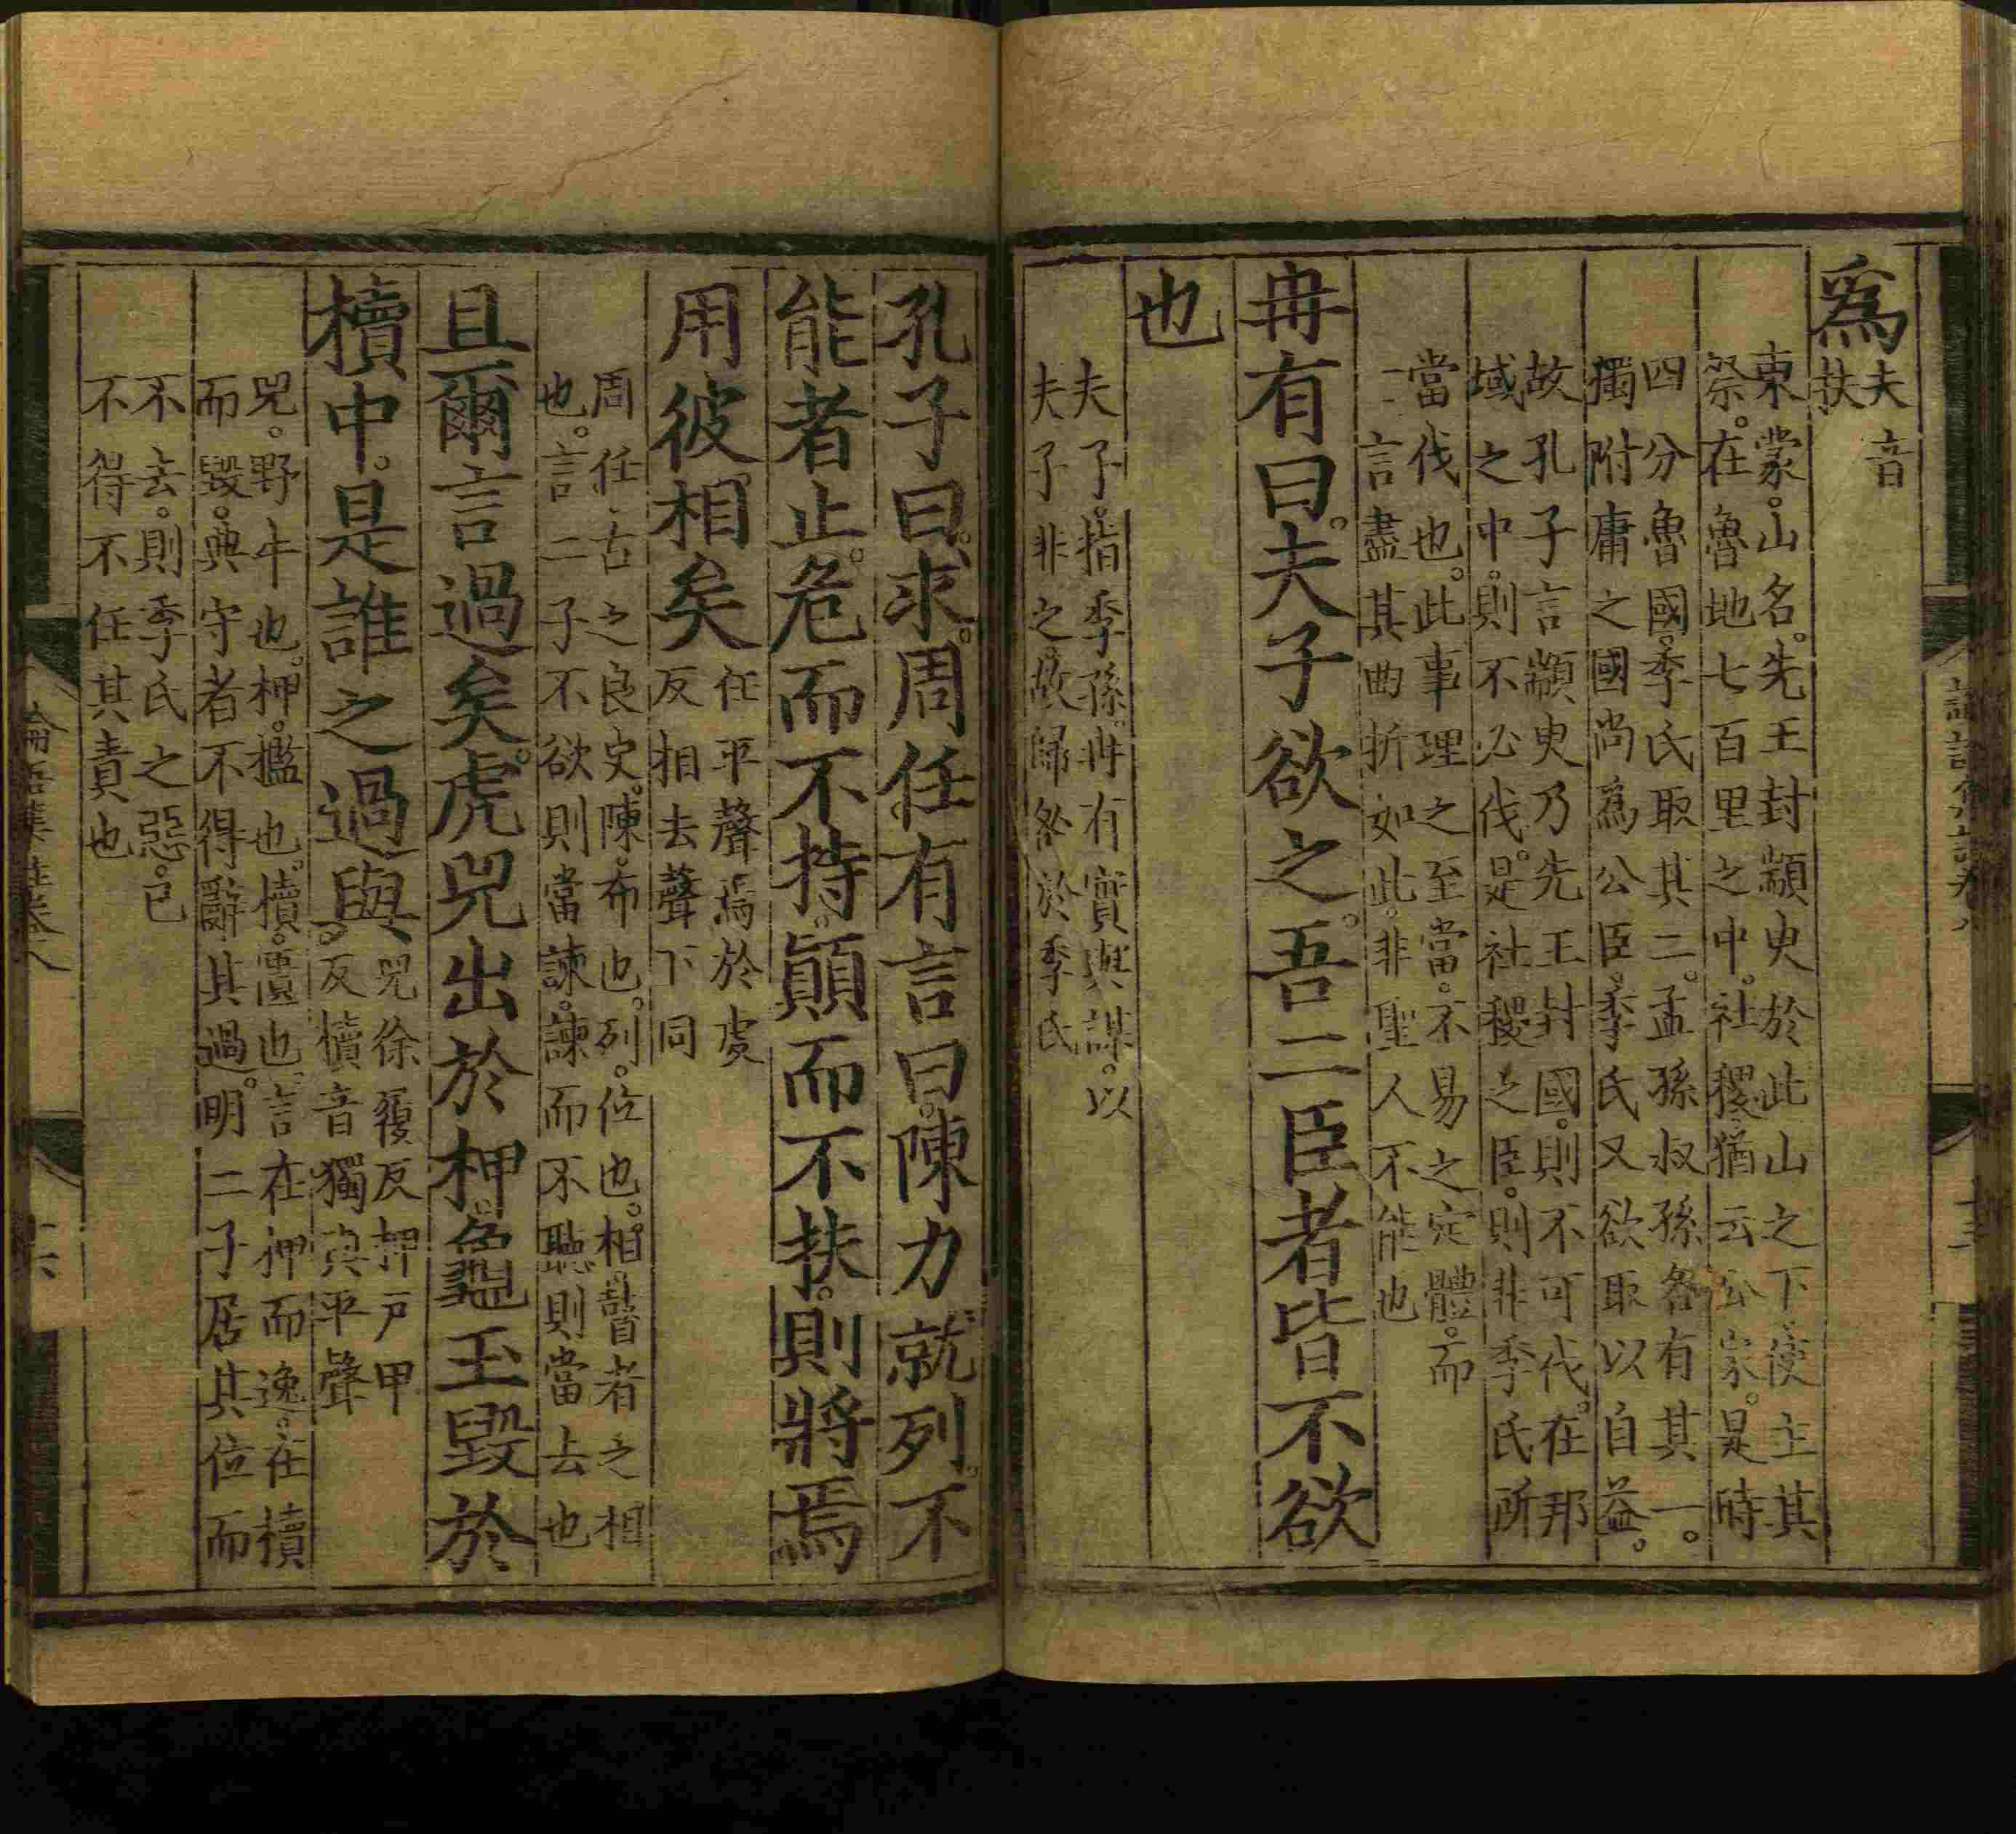 爲
夫音
扶
東蒙。山名。先王封顓臾於此山之下。使主其
祭。在魯地七百里之中。社稷猶云公家。是時
四分魯國。季氏取其二。孟孫叔孫各有其一。
獨附庸之國尚爲公臣。季氏又欲取以自益。
故孔子言顓臾乃先王封國。則不可伐。在邦
域之中。則不必伐。是社稷之臣。則非季氏所
當伐也。此事理之至當。不易之定體。而一
言盡其曲折如此。非聖人不能也
冉有曰。夫子欲之。吾二臣者皆不欲
也
夫子。指季孫。冉有實與謀。以
夫子非之。故歸咎於季氏
孔子曰。求。周任有言曰。陳力就列。不
能者止。危而不持。顚而不扶。則將焉
用彼相矣
任平聲焉於虔
反相去聲下同
周任。古之良史。陳。布也。列。位也。相。瞽者之相
也。言二子不欲則當諫。諫而不聽則當去也
且爾言過矣。虎兕出於柙。龜玉毀於
櫝中。是誰之過與
兕徐履反柙戶甲
反櫝音獨與平聲
兕。野牛也。柙。檻也。櫝。匱也。言在柙而逸。在櫝
而毀。典守者不得辭其過。明二子居其位而
不去。則季氏之惡。已
不得不任其責也
論語集註卷八
十六